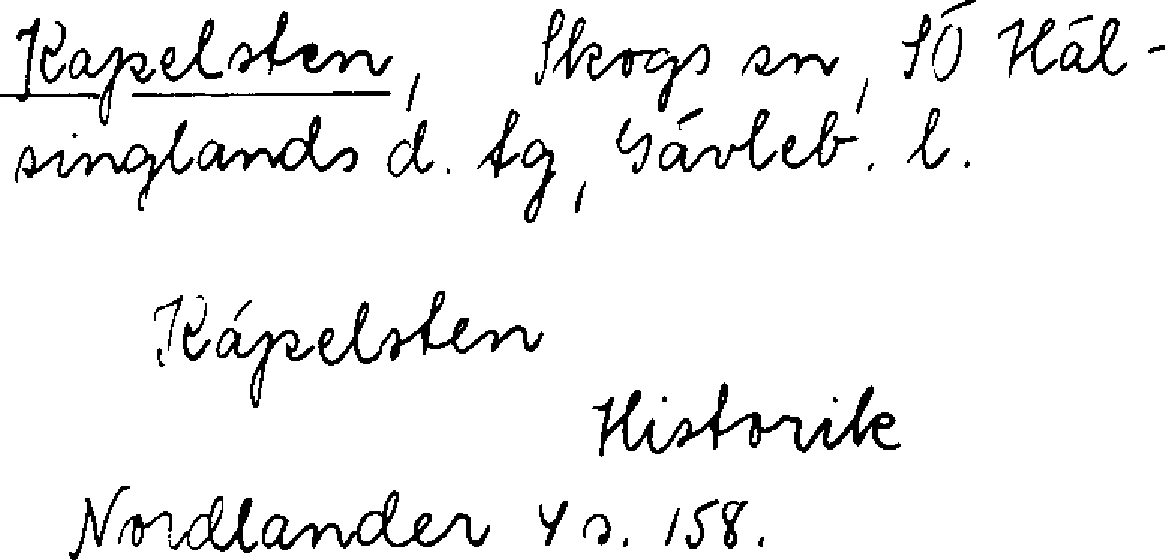 Kapelsten, Skogs sn, SÖ Häl-
singlands d. tg, Gävleb. l.
Kápelsten
Historik
Nordlander 4 s. 158.